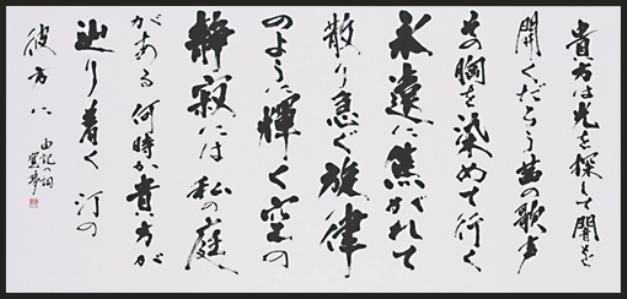 貴方は光を探して闇を
開くだろう茜の歌声
その胸を染めて行く
永遠に焦がれて
散り急ぐ旋律
のように輝く空の
静寂には私の庭
がある何時か貴方が
辿り着く汀の
彼方に
由記の詞